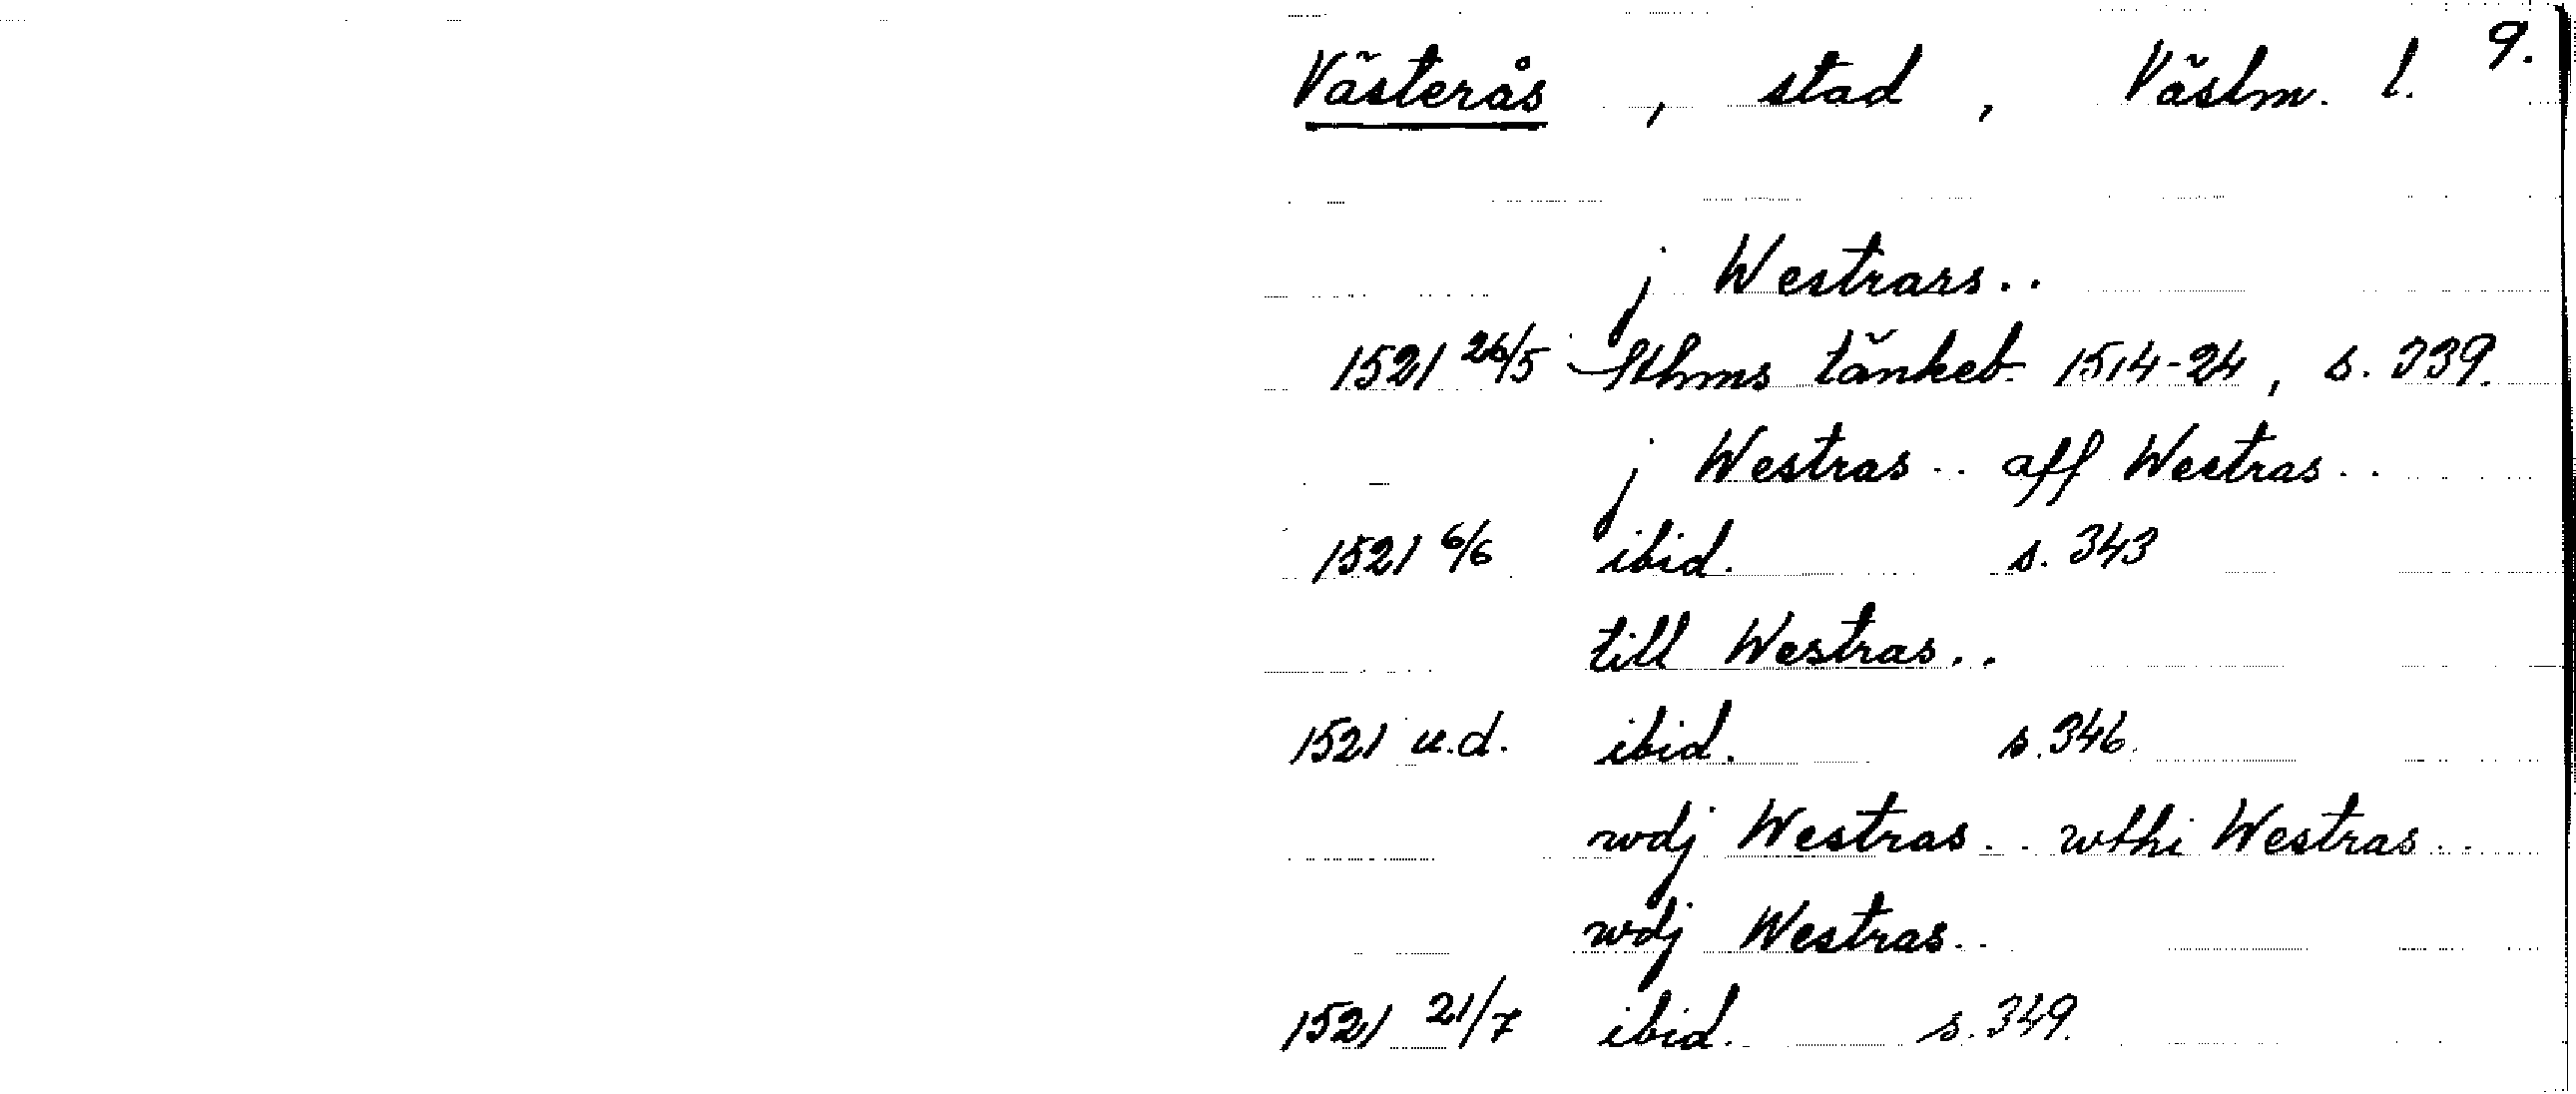 9.
Västerås, stad, Västm. l.
j Westrars..
1521 26/5 Sthms tänkeb. 1514-24, s. 339.
j Westras.. aff Westras..
1521 6/6 ibid. s. 343
till Westras..
1521 u.d. ibid. s. 346.
wdj Westras.. wthi Westras..
wdj Westras..
1521 21/7 ibid. s. 349.